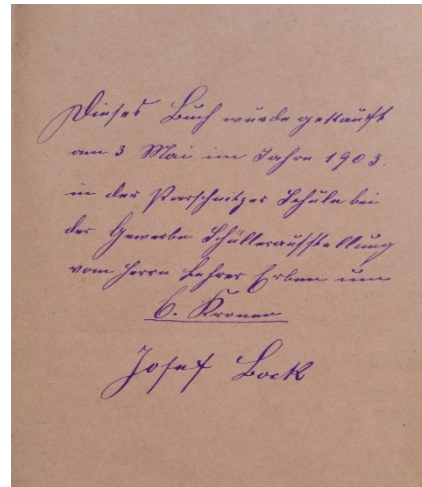 Dieses Buch wurde gekauft
am 3 Mai im Jahre 1903.
in der Parschnitzer Schule bei
der Gewerbe Schüllerausstellung
vom Herrn Lehrer Erben um
6. Kronen
Josef Bock